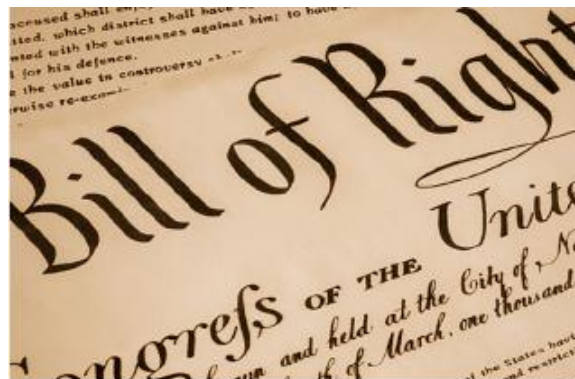 accused shall enjoy
which district shall have
with the witnesses against him; to have
for his defence.
the value in controversy shall
re-exam
Bill of Right
Congreſs OF THE Unite
and held at the City of N
of March, one thousand
of the States hav
and restric